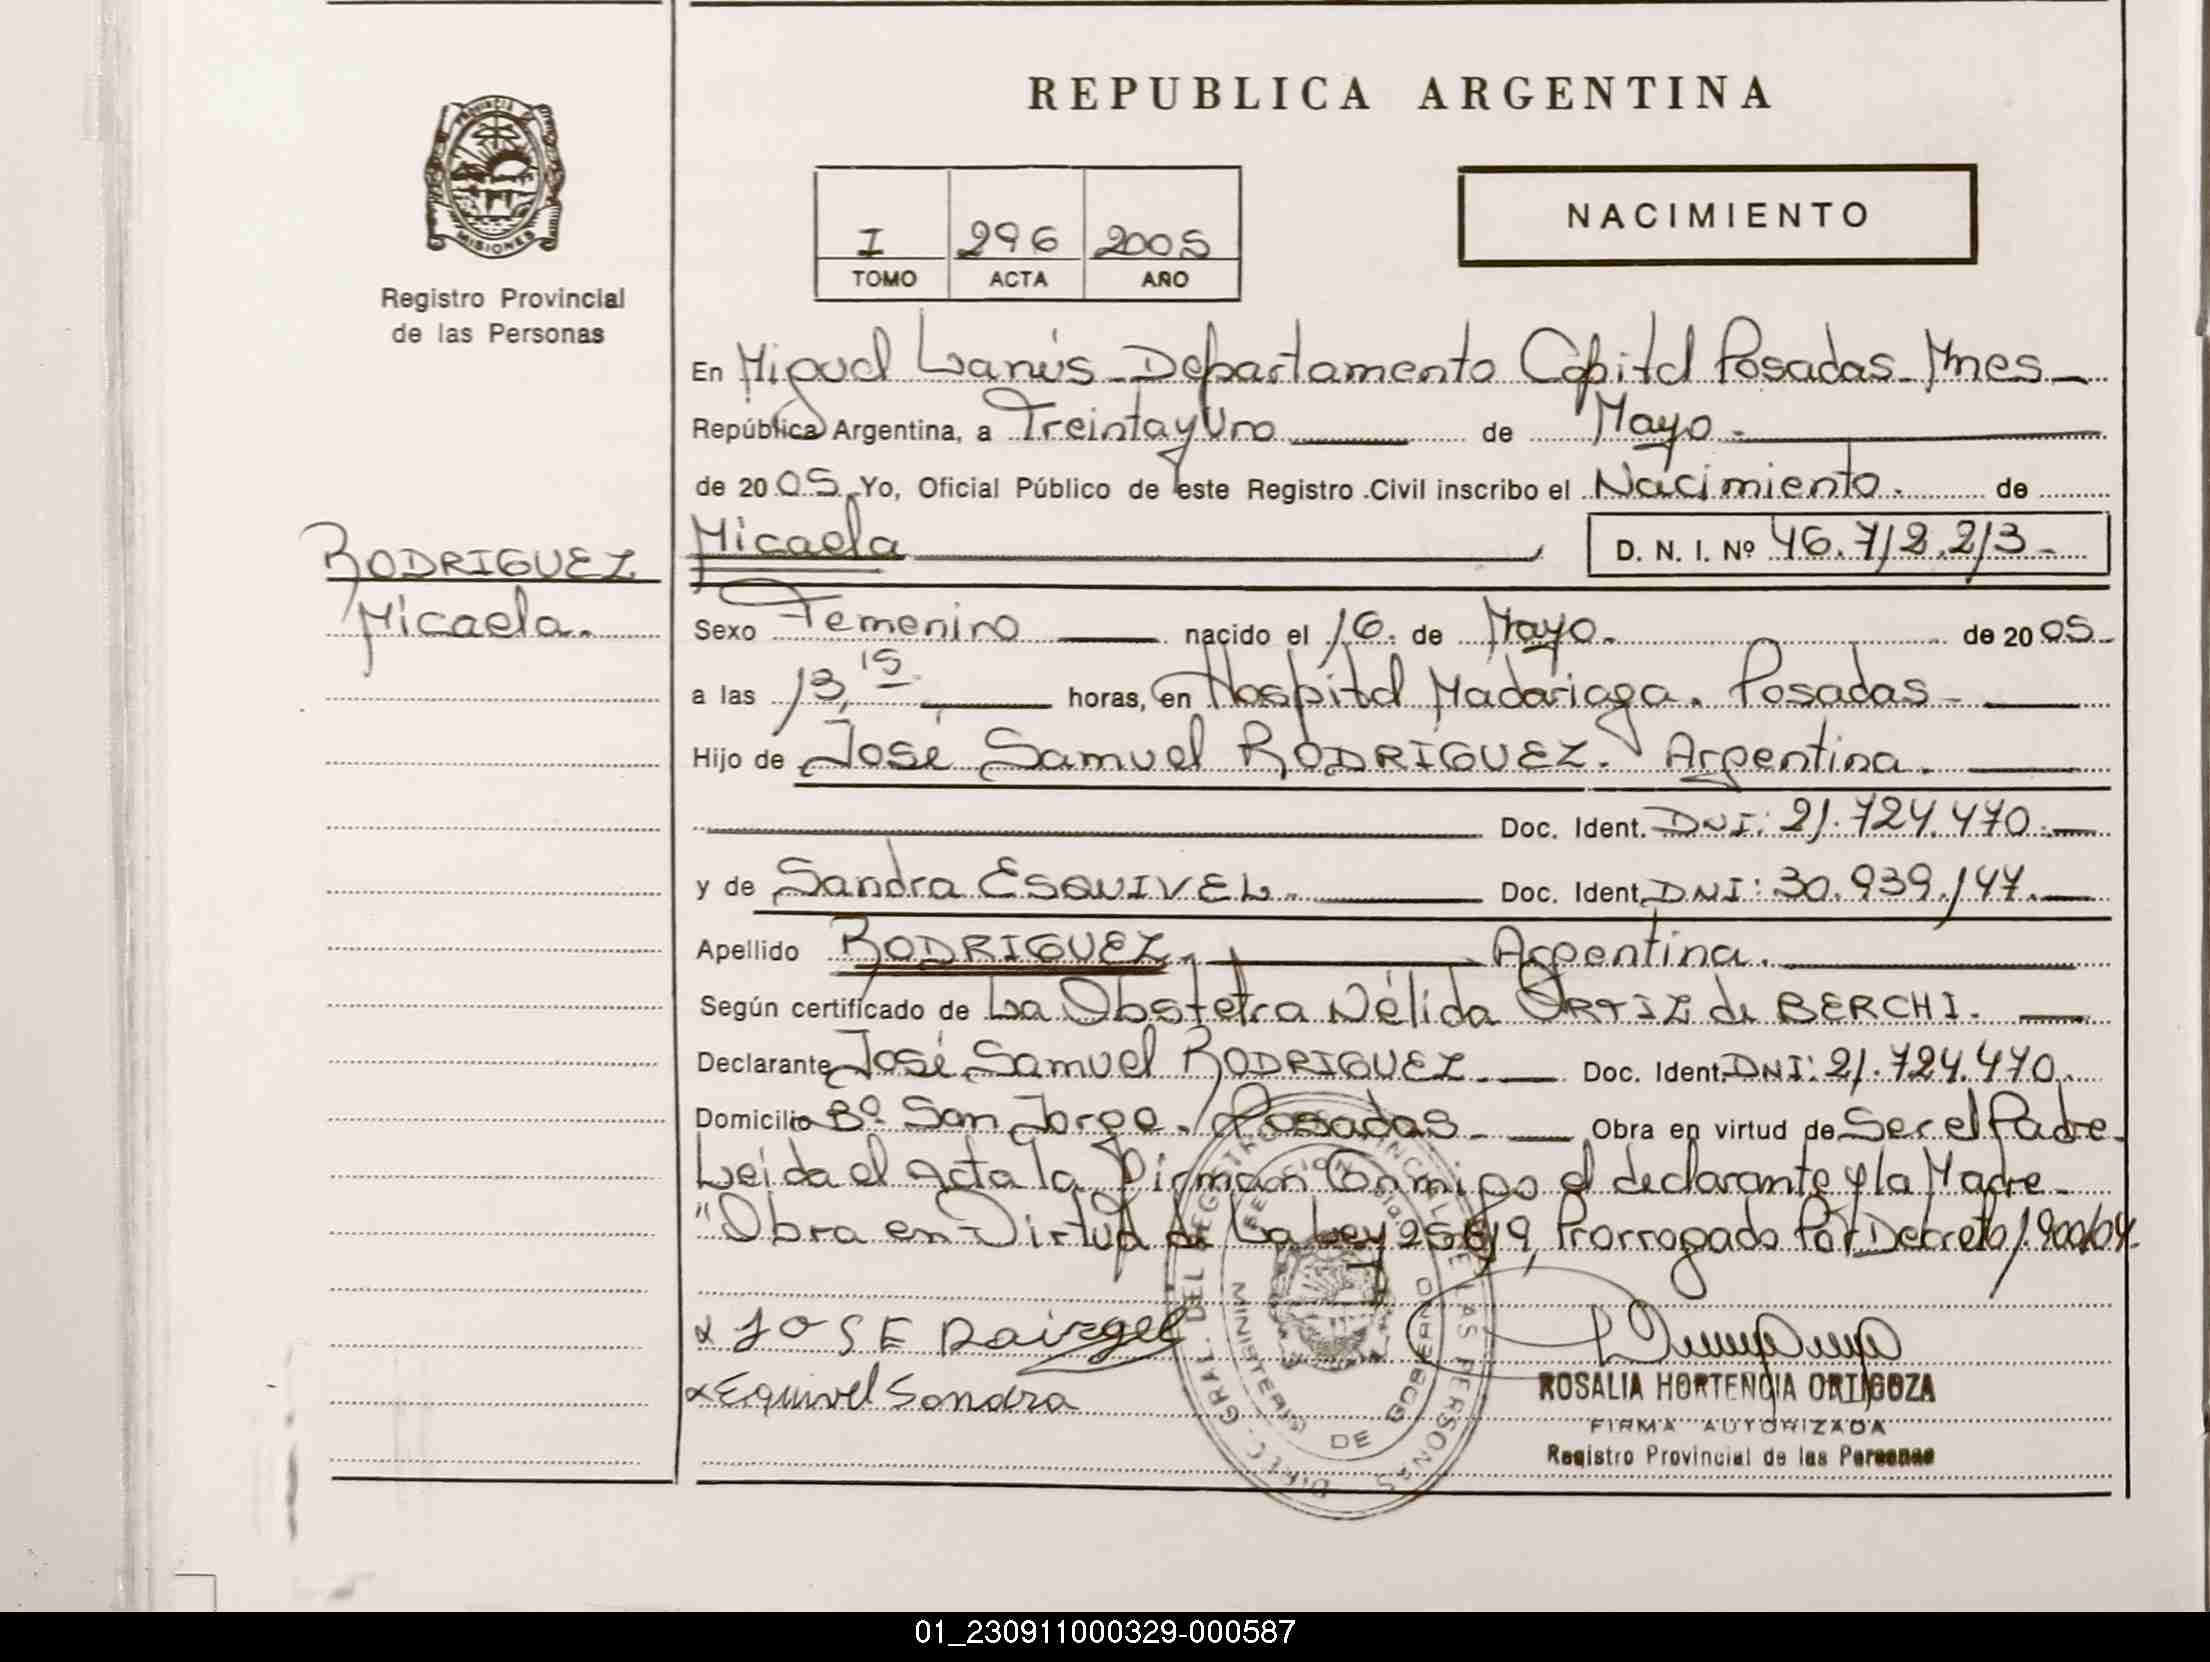 REPUBLICA ARGENTINA
PROVINCIA DE
MISIONES
Registro Provincial
de las Personas
I 296 2005
TOMO ACTA AÑO
NACIMIENTO
En Miguel Lanús - Departamento Capital Posadas - Mnes -
República Argentina, a Treinta y Uno de Mayo.
de 2005. Yo, Oficial Público de este Registro Civil inscribo el Nacimiento. de
RODRIGUEZ
Micaela.
Micaela D. N. I. Nº 46.712.213-
Sexo Femenino nacido el 16. de Mayo. de 2005.
a las 13,15 horas, en Hospital Madariaga. Posadas -
Hijo de José Samuel RODRIGUEZ. Argentina.
Doc. Ident. DNI: 21.724.470.
y de Sandra ESQUIVEL. Doc. Ident. DNI: 30.939.147.
Apellido RODRIGUEZ. Argentina.
Según certificado de La Obstetra Nélida ORTIZ de BERCHI.
Declarante José Samuel RODRIGUEZ. Doc. Ident. DNI: 21.724.470.
Domicilio Bº San Jorge. Posadas - Obra en virtud de Ser el Padre.
Leída el Acta la Firman Conmigo el declarante y la Madre.
"Obra en Virtud de La Ley 25819, Prorrogado Por Decreto 1.900/04.
x JOSE
x Equivel Sandra
DIREC. GRAL. DEL REGISTRO PROVINCIAL DE LAS PERSONAS
MINISTERIO DE GOBIERNO
ROSALIA HORTENCIA ORTIGOZA
FIRMA AUTORIZADA
Registro Provincial de las Personas
01_230911000329-000587